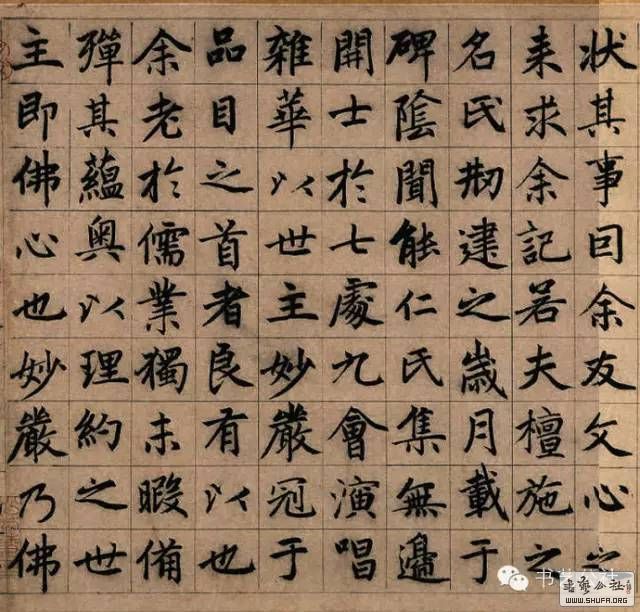 狀其事囙余友文心之
来求余記若夫檀施之
名氏刱建之歲月載于
碑陰聞能仁氏集無邊
開士於七處九會演唱
雜華以世主妙嚴冠于
品目之首者良有以也
余老於儒業獨未暇備
殫其蘊奧以理約之世
主即佛心也妙嚴乃佛
书艺公社
WWW.SHUFA.ORG